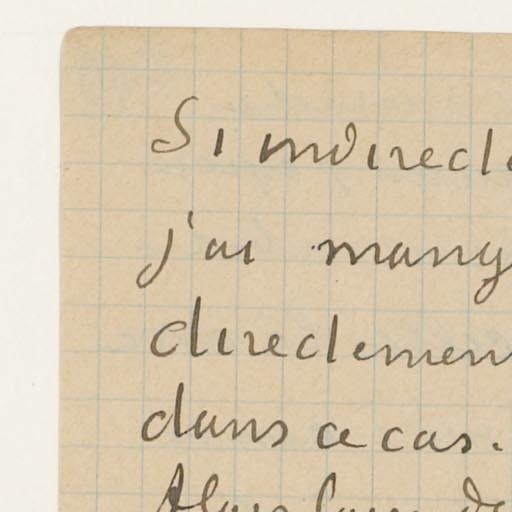 Si indirecte
j'ai mang
directemen
dans ce cas.